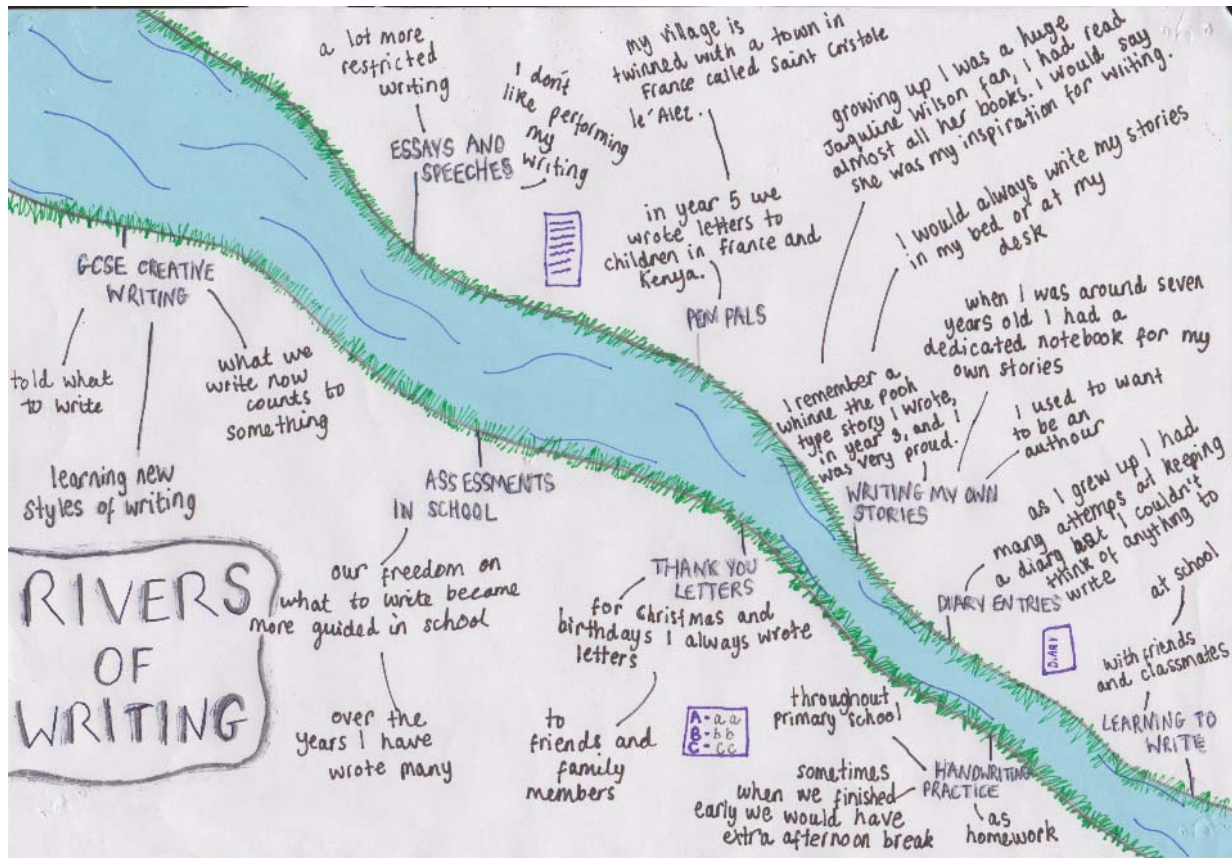 a lot more
restricted
writing
I don't
like performing
my
writing
ESSAYS AND
SPEECHES
my village is
twinned with a town in
France called Saint Cristole
le'Alez.
in year 5 we
wrote letters to
children in france and
Kenya.
PEN PALS
growing up I was a huge
Jaquline Wilson fan, I had read
almost all her books. I would say
she was my inspiration for writing.
I would always write my stories
in my bed or at my
desk
when I was around seven
years old I had a
dedicated notebook for my
own stories
I remember a
whinne the pooh
type story I wrote,
in year 3, and I
was very proud.
I used to want
to be an
authour
WRITING MY OWN
STORIES
as I grew up I had
many attemps at keeping
a diary but I couldn't
think of anything to
write
DIARY ENTRIES
DIARY
at school
with friends
and classmates
LEARNING TO
WRITE
GCSE CREATIVE
WRITING
told what
to write
what we
write now
counts to
something
learning new
styles of writing
ASSESSMENTS
IN SCHOOL
our freedom on
what to write became
more guided in school
over the
years I have
wrote many
THANK YOU
LETTERS
for Christmas and
birthdays I always wrote
letters
to
friends and
family
members
A - a a
B - b b
C - c c
throughout
primary school
HANDWRITING
PRACTICE
sometimes
when we finished
early we would have
extra afternoon break
as
homework
RIVERS
OF
WRITING